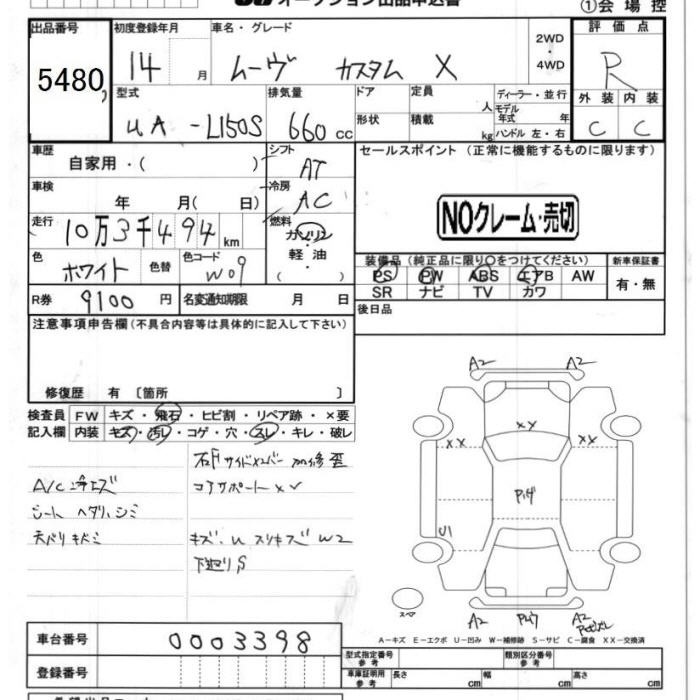 オークション出品申込書
①会場控
出品番号 初度登録年月 車名・グレード 2WD・4WD 評価点
5480 14 月 ムーヴ カスタム X R
型式 排気量 ドア 定員 人 ディーラー・並行 外装 内装
UA-L150S 660cc 形状 積載 kg モデル年式 年 ハンドル 左・右 C C
車歴 シフト セールスポイント (正常に機能するものに限ります)
自家用・( ) AT
車検 冷房
年 月( 日) AC NOクレーム・売切
走行 燃料
10万3千494km ガソリン
色 色替 色コード 軽・油 装備品(純正品に限り○をつけてください) 新車保証書
ホワイト W09 ( ) PS PW ABS エアB AW 有・無
SR ナビ TV カワ
R券 9100円 名変通知期限 月 日 後日品
注意事項申告欄(不具合内容等は具体的に記入して下さい)
修復歴 有 〔箇所 〕
検査員 FW キズ・飛石・ヒビ割・リペア跡・×要
記入欄 内装 キズ・汚レ・コゲ・穴・スレ・キレ・破レ
右F サイドメンバー 修 歪
A/C コアサポート×
シート ヘタリ、シミ
天バリキズシミ キズ、U スリキズ W2
下廻りS
A2 A2
XY
XX XX
U1
スペア
A2 A2
A-キズ E-エクボ U-凹み W-補修跡 S-サビ C-腐食 XX-交換済
車台番号 0003398
型式指定番号 参考 類別区分番号 参考
登録番号 車庫証明用 参考 長さ cm 幅 cm 高さ cm